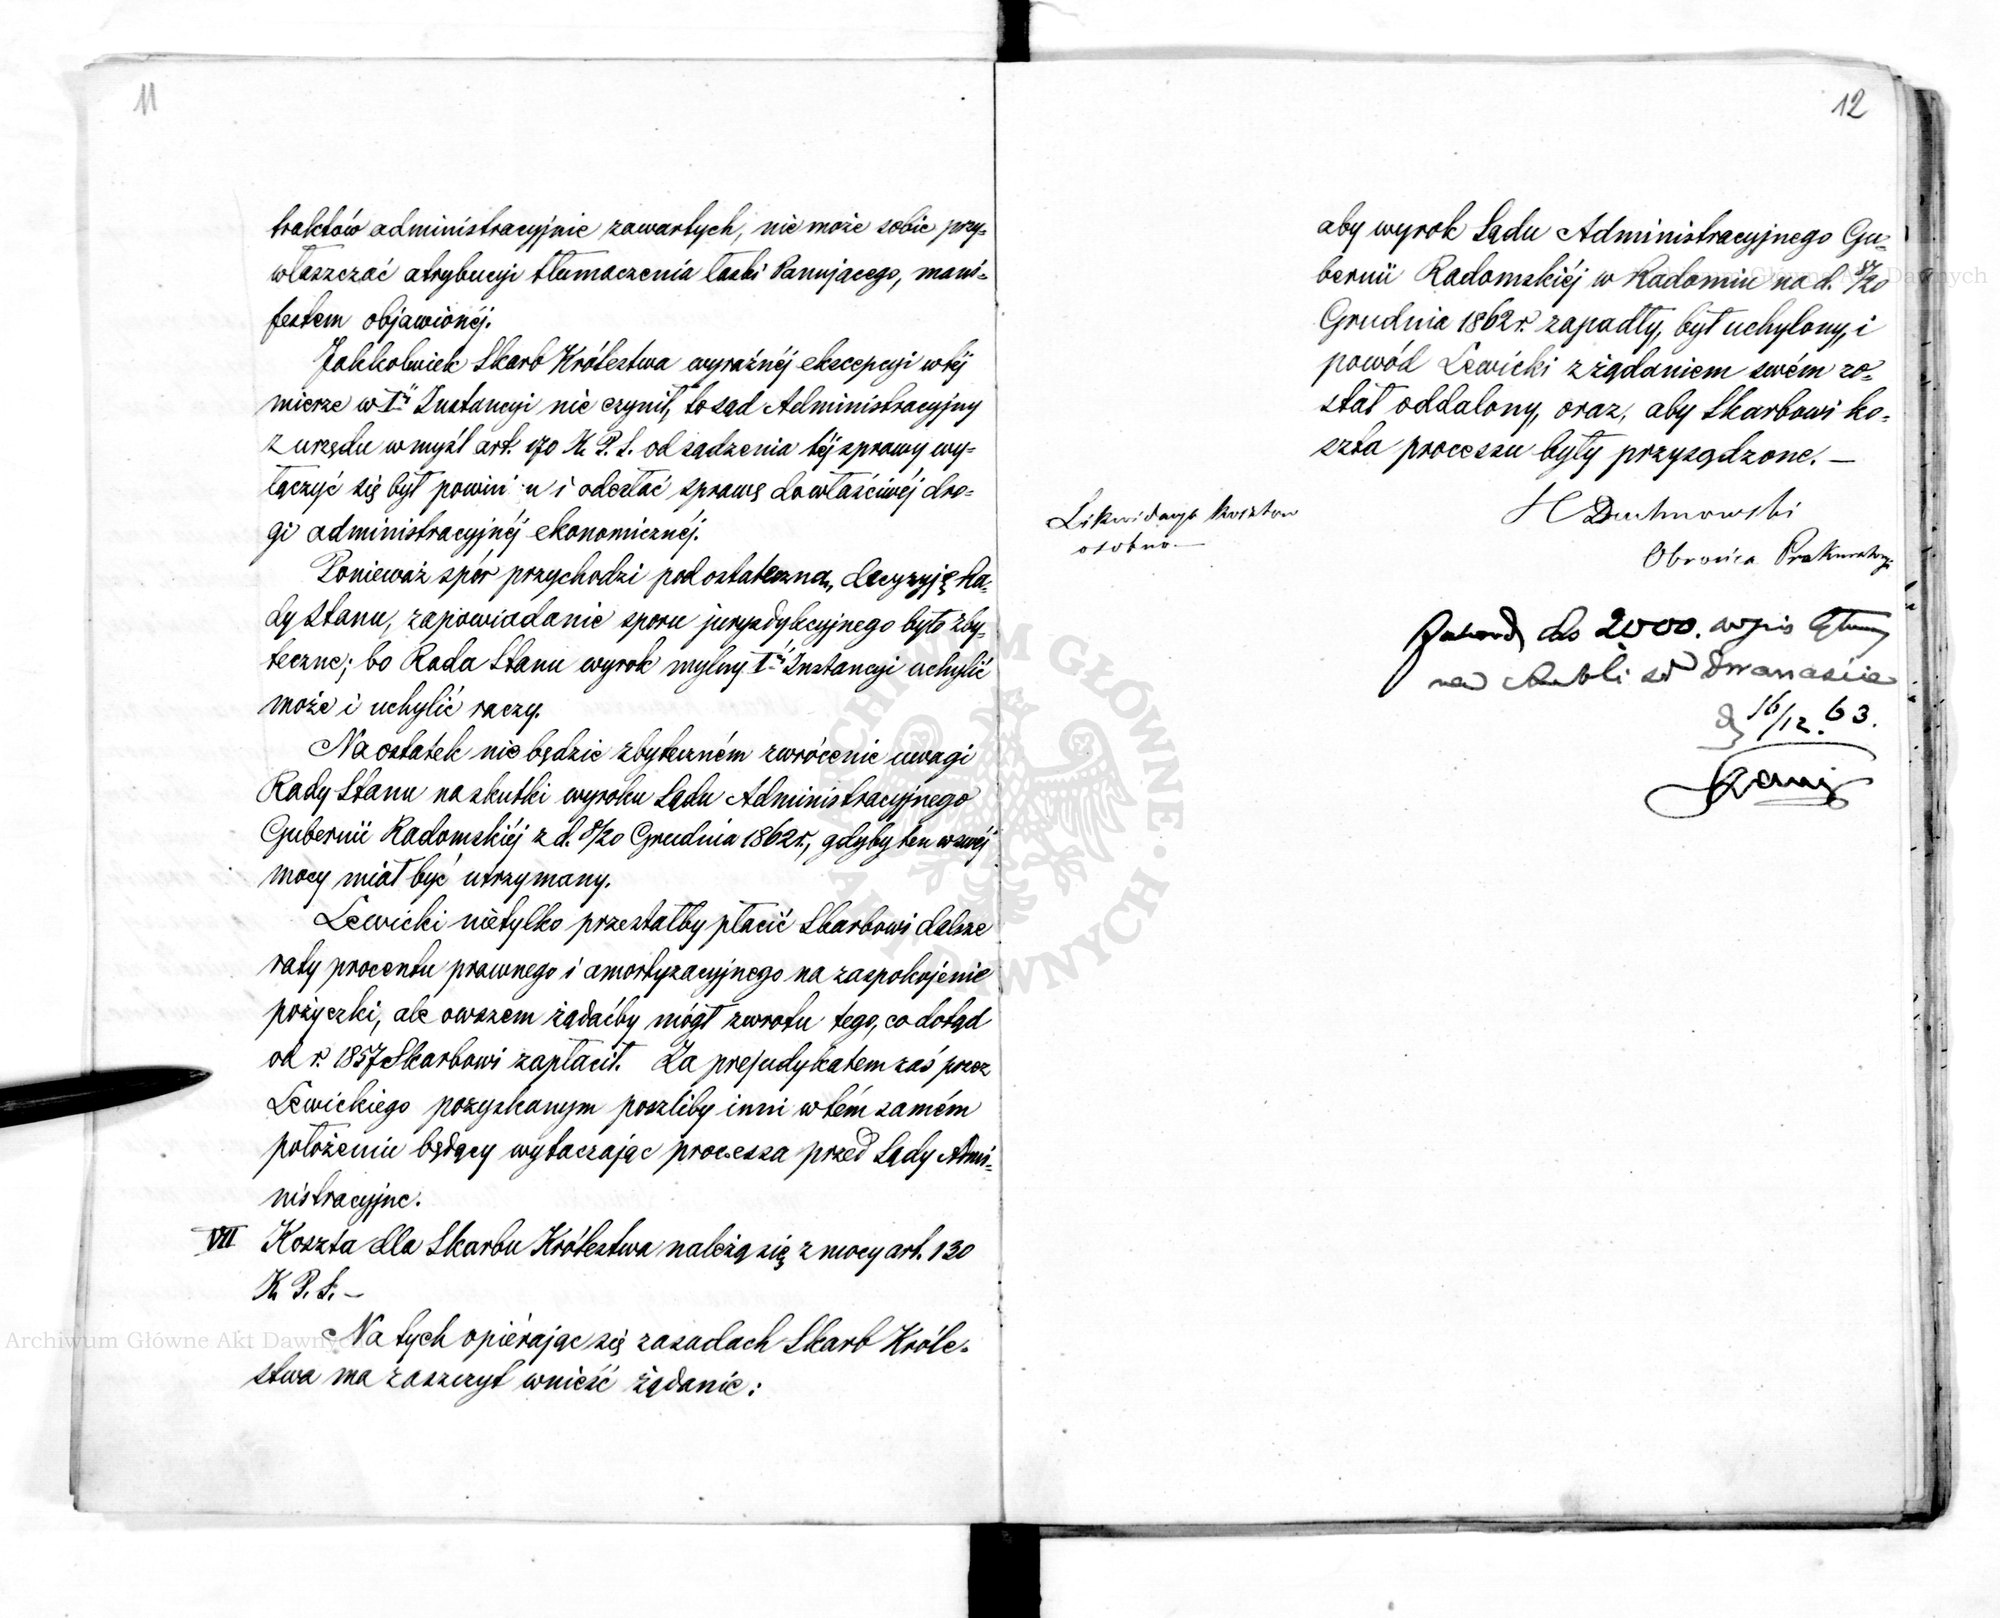 11
traktów administracyjnie zawartych, nie może sobie przy-
właszczać atrybucyi tłumaczenia łaski Panującego, mani-
festem objawionéj.
Jakkolwiek Skarb Królestwa wyraźnéj ekscepcyi w téj
mierze w Iéj Instancyi nie czynił, to sąd Administracyjny
z urzędu w myśl art. 170 K. P. S. od sądzenia téj sprawy wy-
łączyć się był powinien i odesłać sprawę do właściwéj dro-
gi administracyjnéj ekonomicznéj.
Ponieważ spór przychodzi pod ostateczną decyzyję Ra-
dy Stanu, zapowiadanie sporu juryzdykcyjnego było zby-
teczne; bo Rada Stanu wyrok mylny Iéj Instancyi uchylić
może i uchylić raczy.
Na ostatek nie będzie zbyteczném zwrócenie uwagi
Rady Stanu na skutki wyroku Sądu Administracyjnego
Gubernii Radomskiéj z d. 8/20 Grudnia 1862 r., gdyby ten w swéj
mocy miał być utrzymany.
Lewicki nietylko przestałby płacić Skarbowi dalsze
raty procentu prawnego i amortyzacyjnego na zaspokojenie
pożyczki, ale owszem żądaćby mógł zwrotu tego, co dotąd
od r. 1857 Skarbowi zapłacił. Za prejudykatem zaś przez
Lewickiego pozyskanym poszliby inni w tém samém
położeniu będący wytaczając processa przed Sądy Admi-
nistracyjne.
VII Koszta dla Skarbu Królestwa należą się z mocy art. 130
K. P. S. —
Na tych opiérając się zasadach Skarb Króle-
stwa ma zaszczyt wnieść żądanie:
12
aby wyrok Sądu Administracyjnego Gu-
bernii Radomskiéj w Radomiu na d. 8/20
Grudnia 1862 r. zapadły, był uchylony, i
powód Lewicki z żądaniem swém zo-
stał oddalony, oraz, aby Skarbowi ko-
szta processu były przysądzone. —
Likwidacya kosztów
osobno. —
H Duchnowski
Obrońca Prokuratoryi
do 2000. wpis
na rubli sr dwanaście
d 16/12. 63.
ARCHIWUM GŁÓWNE AKT DAWNYCH
Archiwum Główne Akt Dawnych
Archiwum Główne Akt Dawnych